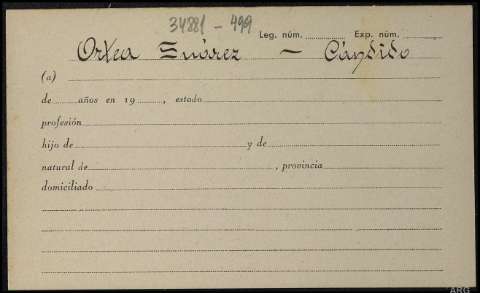 34881 - 499
Leg. núm. Exp. núm.
Ortea Suárez - Cándido
(a)
de años en 19 , estado
profesión
hijo de y de
natural de , provincia
domiciliado
ARG